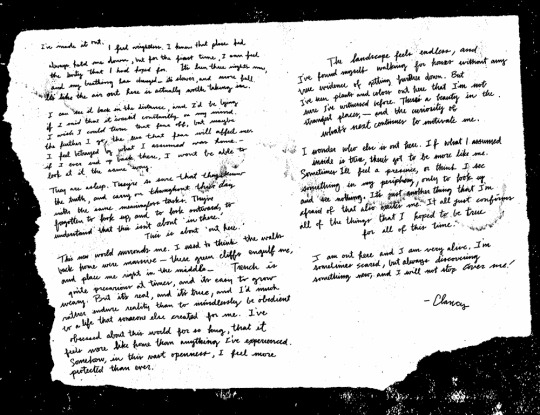 I've made it out. I feel weightless. I knew that place had
always held me down, but for the first time, I can feel
the lively that I had hoped for. It's been three nights now
and my breathing has changed - it's slower, and more full.
It's like the air out here is actually worth taking in.
I can see it back in the distance, and I'd be lying
if I said that it wasn't constantly on my mind.
I wish I could turn that fear off, but maybe
the further I go, the less that fear will affect me.
I feel betrayed by what I assumed was home -
if I ever end up back there, I won't be able to
look at it the same way.
They are asleep. They're so sure that they know
the truth, and carry on throughout their day
with the same meaningless tasks. They've
forgotten to look up, and to look outward, to
understand that this isn't about "in there."
This is about "out here."
This new world surrounds me. I used to think the walls
back home were massive - these green cliffs engulf me,
and place me right in the middle - Trench is
quite precarious at times, and its easy to grow
weary. But its real, and its true, and I'd much
rather endure reality than to mindlessly be obedient
to a life that someone else created for me. I've
obsessed about this world for so long, that it
feels more like home than anything I've experienced.
Somehow, in this vast openness, I feel more
protected than ever.
The landscape feels endless, and
I've found myself walking for hours without any
true evidence of getting further down. But
I've seen plants and colors out here that I'm not
sure I've witnessed before. There's a beauty in the
strangest places, - and the curiosity of
what's next continues to motivate me.
I wonder who else is out here. If what I assumed
inside is true, there's got to be more like me.
Sometimes I'll feel a presence, or think I see
something in my periphery, only to look up
and see nothing. It's just another thing that I'm
afraid of that also excites me. It all just confirms
all of the things that I hoped to be true
for all of this time.
I am out here and I am very alive. I'm
sometimes scared, but always discovering
something new, and I will not stop
- Clancy